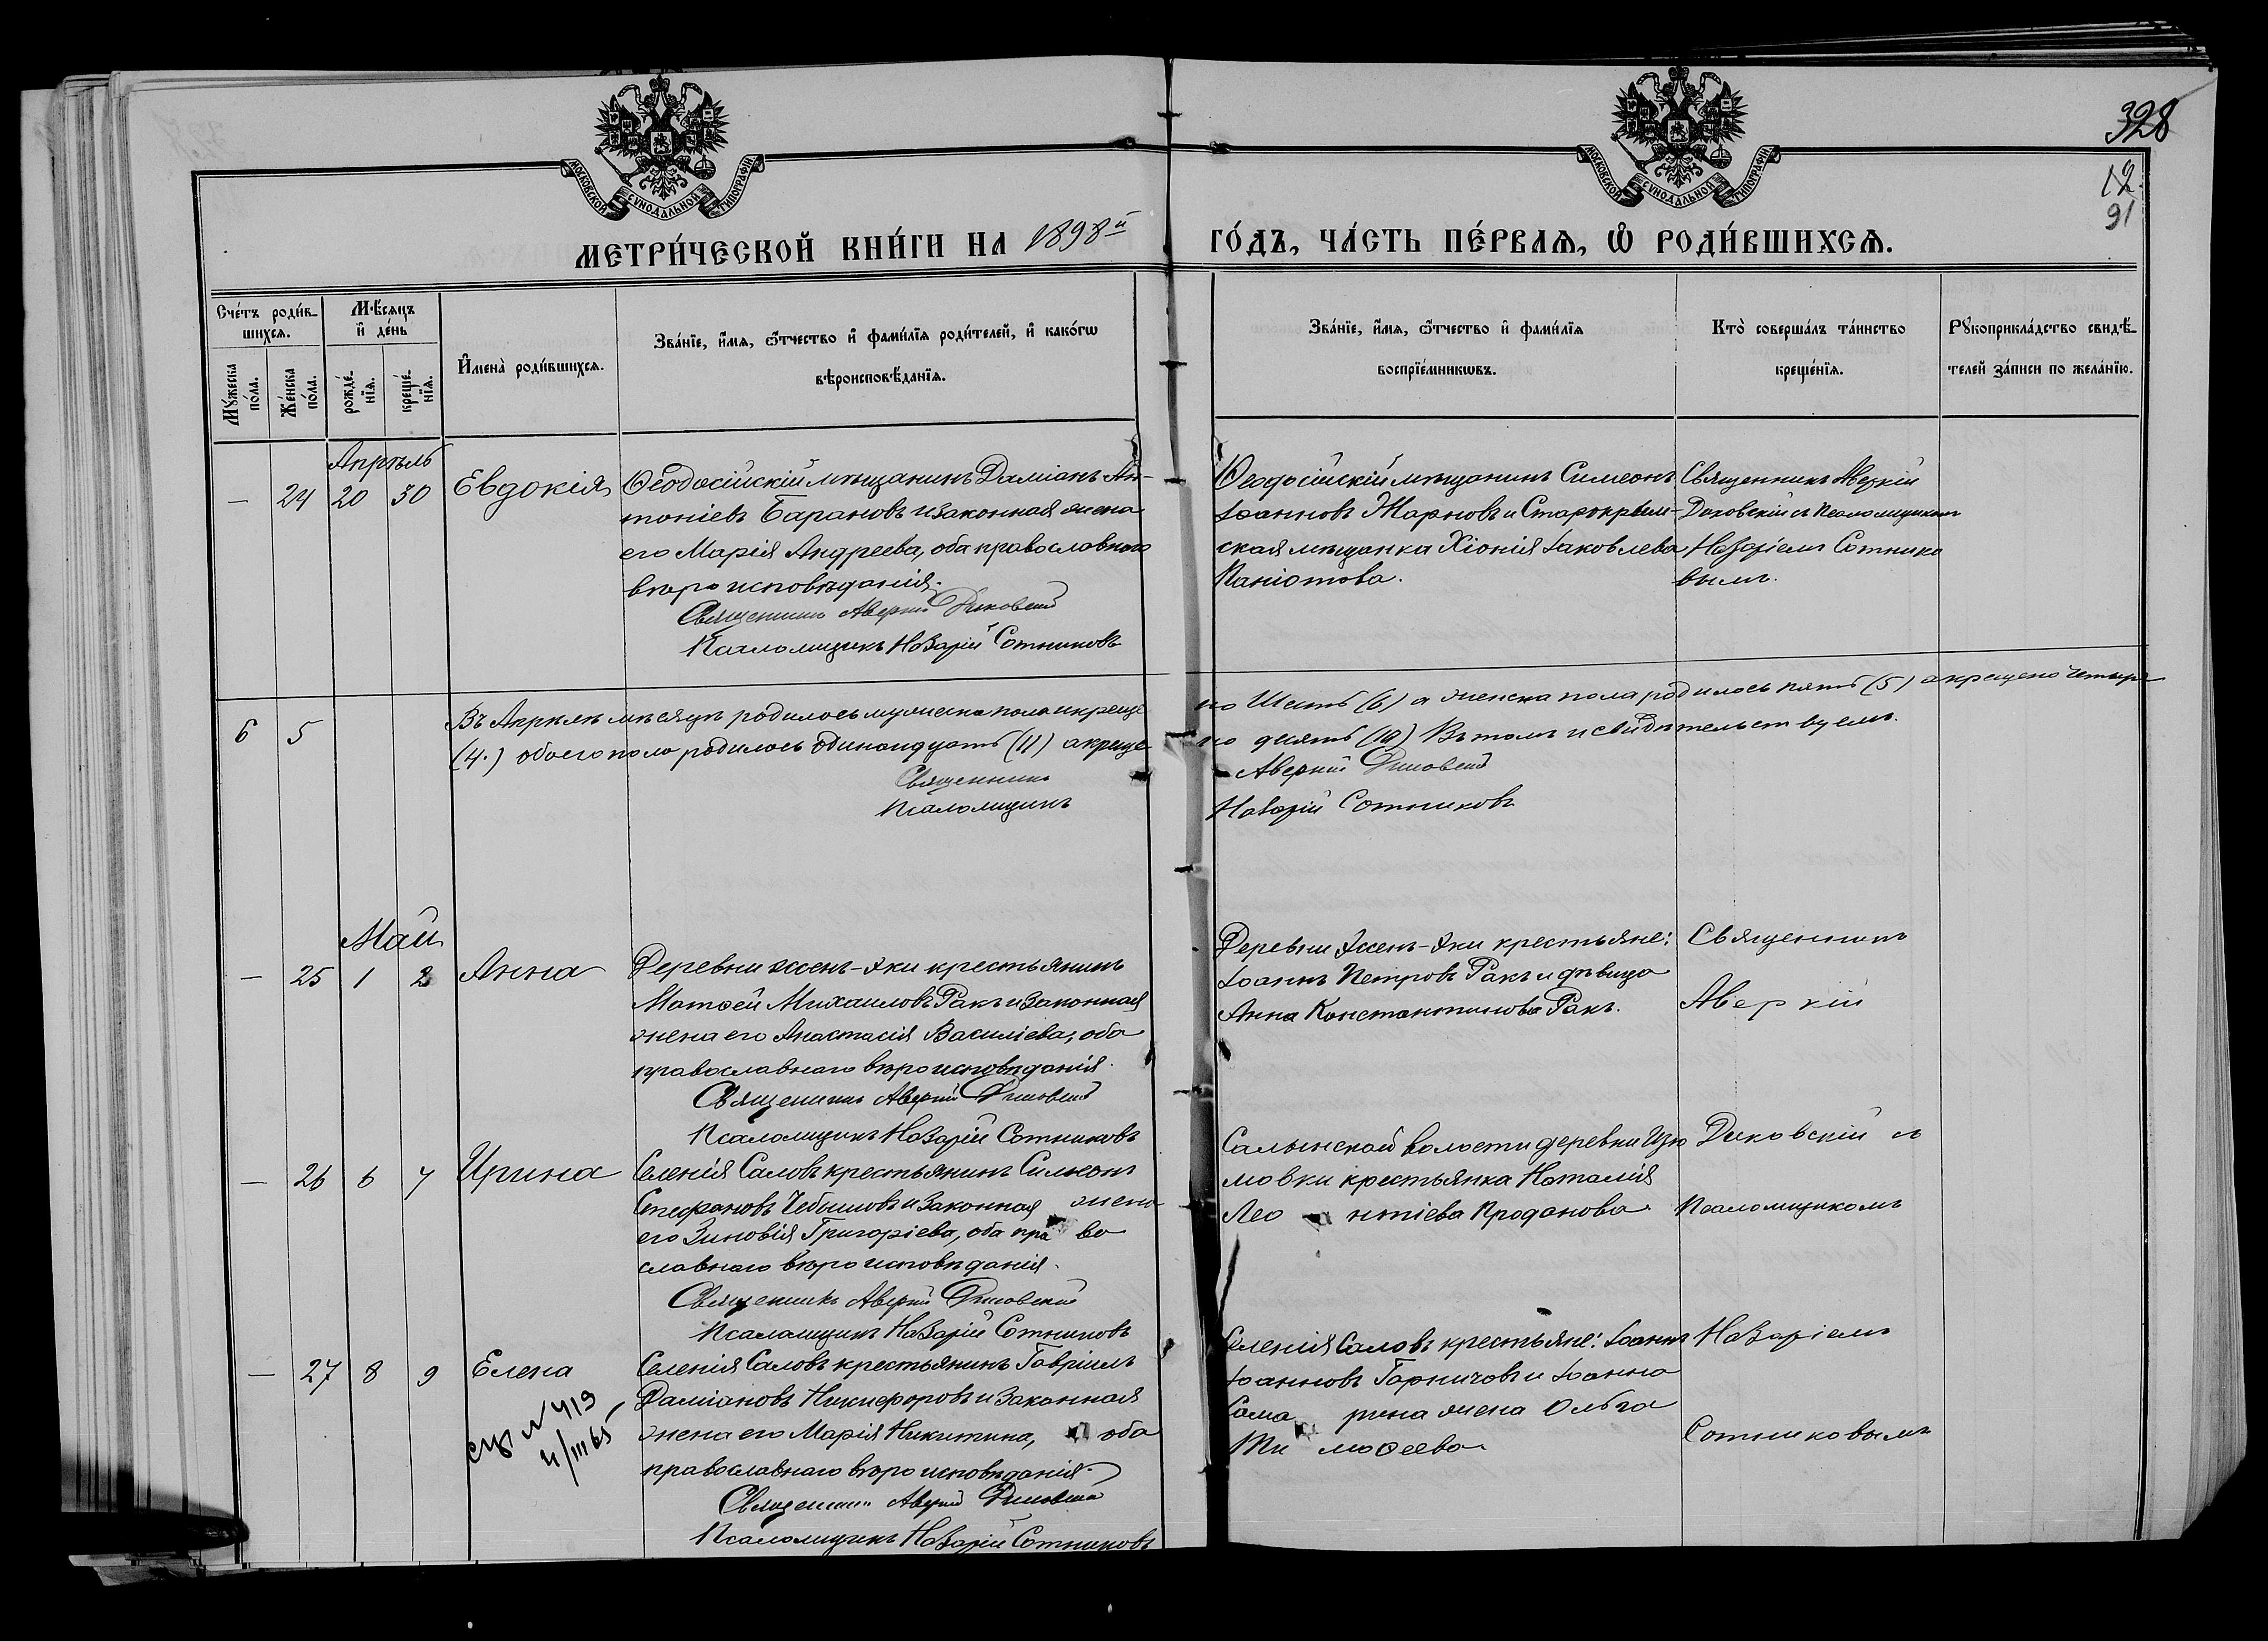 328
12.
91
МОСКОВСКОЙ СѴНОДАЛЬНОЙ ТИПОГРАФІИ
МОСКОВСКОЙ СѴНОДАЛЬНОЙ ТИПОГРАФІИ
МЕТРИ́ЧЕСКОЙ КНИ́ГИ НА 1898й ГО́ДЪ, ЧА́СТЬ ПЕ́РВАѦ, Ѡ҆ РОДИ́ВШИХСѦ.
Сче́тъ роди́в-
шихсѧ.
Мꙋ́жеска
по́ла.
Же́нска
по́ла.
Мѣ́сѧцъ
и҆ де́нь
рожде́-
нїѧ.
креще́-
нїѧ.
И҆мена̀ роди́вшихсѧ.
Зва́нїе, и҆́мѧ, ѻ҆́тчество и҆ фами́лїѧ роди́телей, и҆ како́гѡ
вѣроисповѣ́данїѧ.
Зва́нїе, и҆́мѧ, ѻ҆́тчество и҆ фами́лїѧ
воспрїе́мникѡвъ.
Кто̀ соверша́лъ та́инство
креще́нїѧ.
Рꙋкоприкла́дство свидѣ́-
телей за́писи по жела́нїю.
Апрѣль
— 24 20 30 Евдокія
Ѳеодосійскій мѣщанинъ Даміанъ Ан-
тоніевъ Барановъ и законная жена
его Марія Андреева, оба православнаго
вѣроисповѣданія.
Священникъ Аверкій Диковскій
Псаломщикъ Назарій Сотниковъ
Ѳеодосійскій мѣщанинъ Симеонъ
Іоанновъ Жарновъ и Старокрым-
ская мѣщанка Хіонія Іаковлева
Паніотова.
Священникъ Аверкій
Диковскій съ Псаломщикомъ
Назаріемъ Сотнико
вымъ.
6 5
Въ Апрѣлѣ мѣсяцѣ родилось мужеска пола и креще но Шесть (6) а женска пола родилось пять (5) а крещено четыре
(4.) обоего пола родилось одинандцать (11) а креще но десять (10) Въ томъ и свидѣтельствуемъ.
Священникъ Аверкій Диковскій
Псаломщикъ Назарій Сотниковъ
Май
— 25 1 2 Анна
Деревни Дженъ-Яки крестьянинъ
Матѳей Михаиловъ Ракъ и законная
жена его Анастасія Василіева, оба
православнаго вѣроисповѣданія.
Священникъ Аверкій Диковскій
Псаломщикъ Назарій Сотниковъ
Деревни Джен-Яки крестьяне:
Іоаннъ Петровъ Ракъ и дѣвица
Анна Константинова Ракъ.
Священникъ
Аверкій
— 26 6 7 Ирина
Селенія Саловъ крестьянинъ Симеонъ
Стефановъ и законная жена
его Зиновія Григоріева, оба право
славнаго вѣроисповѣданія.
Священникъ Аверкій Диковскій
Псаломщикъ Назарій Сотниковъ
Салынской волости деревни Изю
мовки крестьянка Наталія
Леонтіева Проданова.
Диковскій съ
Псаломщикомъ
— 27 8 9 Елена
Селенія Саловъ крестьянинъ Гавріилъ
Даміановъ Никифоровъ и законная
жена его Марія Никитина, оба
православнаго вѣроисповѣданія.
Священникъ Аверкій Диковскій
Псаломщикъ Назарій Сотниковъ
Селенія Саловъ крестьяне: Іоаннъ
Іоанновъ Гарничовъ и Іоанна
Самарина жена Ольга
Тимоѳеева.
Назаріемъ
Сотниковымъ
N 419